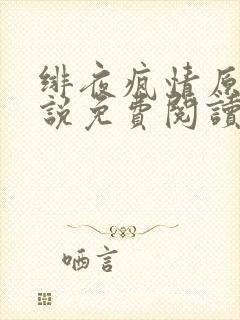 绯夜疯情原
説免費閱讀
哂言